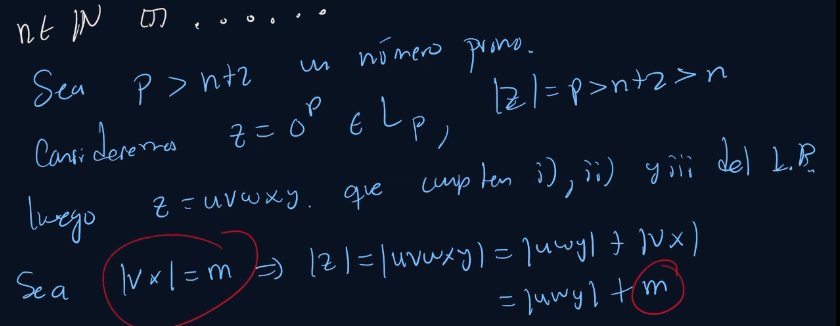 n ∈ ℕ . . . . . . .
Sea p > n+2 un número primo.
Consideremos z = 0^p ∈ L_p, |z| = p > n+2 > n
luego z = uvwxy. que cumplen i), ii) y iii del L.B.
Sea |vx| = m ⇒ |z| = |uvwxy| = |uwy| + |vx|
= |uwy| + m